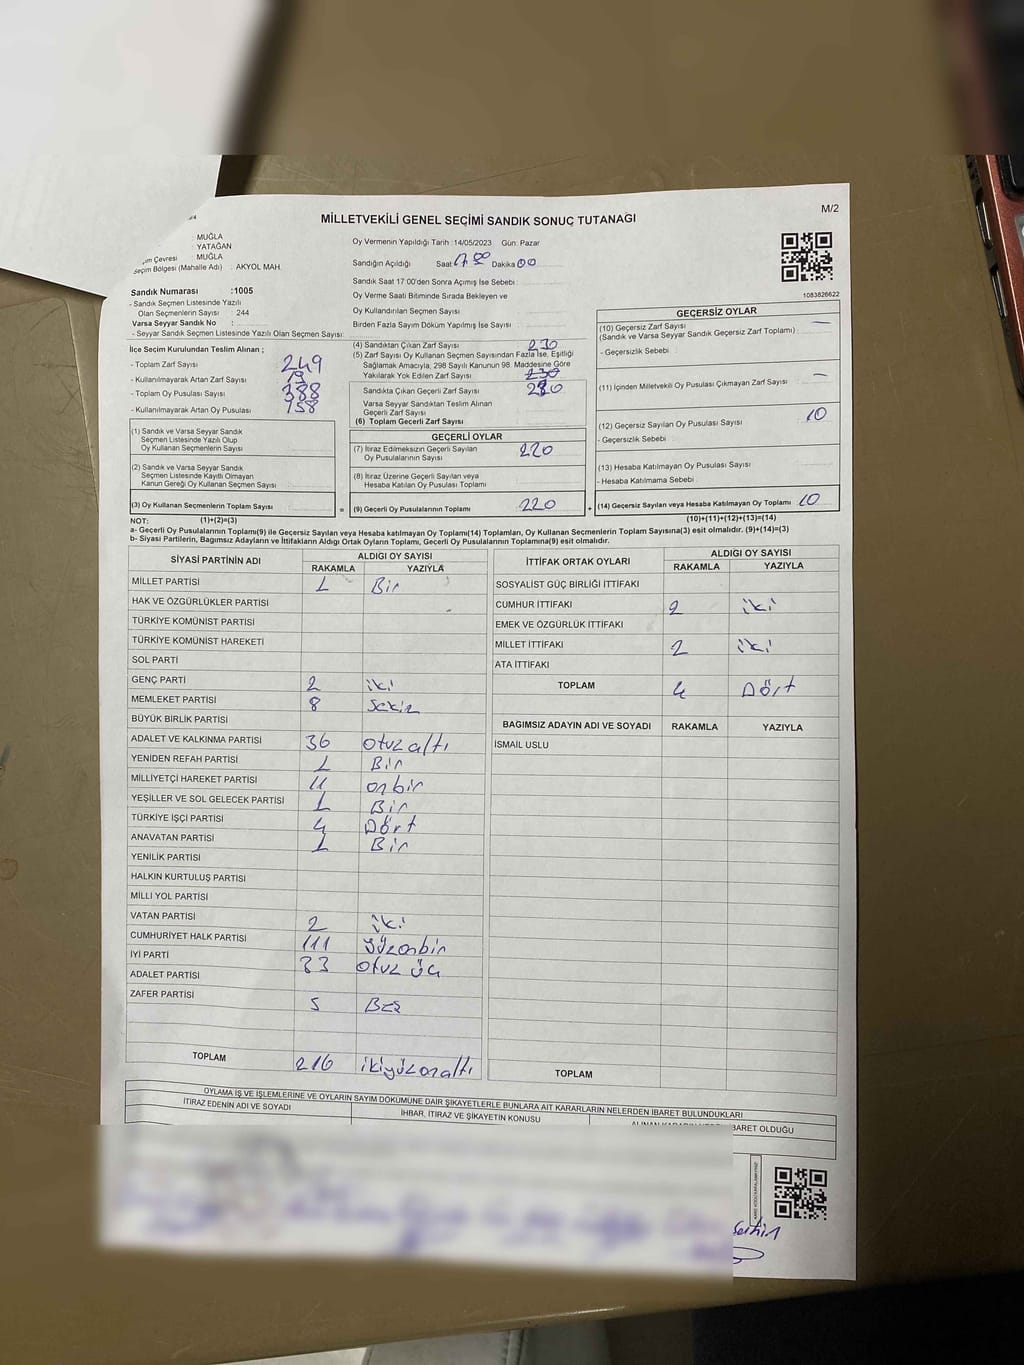 M/2
MİLLETVEKİLİ GENEL SEÇİMİ SANDIK SONUÇ TUTANAĞI
: MUĞLA
: YATAĞAN
im Çevresi : MUĞLA
Seçim Bölgesi (Mahalle Adı) : AKYOL MAH.
Sandık Numarası :1005
- Sandık Seçmen Listesinde Yazılı
Olan Seçmenlerin Sayısı : 244
Varsa Seyyar Sandık No :
- Seyyar Sandık Seçmen Listesinde Yazılı Olan Seçmen Sayısı:
Oy Vermenin Yapıldığı Tarih :14/05/2023 Gün: Pazar
Sandığın Açıldığı Saat 17.00 Dakika 00
Sandık Saat 17.00'den Sonra Açımış İse Sebebi
Oy Verme Saati Bitiminde Sırada Bekleyen ve
Oy Kullandırılan Seçmen Sayısı
Birden Fazla Sayım Döküm Yapılmış İse Sayısı
1083826622
İlçe Seçim Kurulundan Teslim Alınan ;
- Toplam Zarf Sayısı 249
- Kullanılmayarak Artan Zarf Sayısı 19
- Toplam Oy Pusulası Sayısı 388
- Kullanılmayarak Artan Oy Pusulası 158
(1) Sandık ve Varsa Seyyar Sandık
Seçmen Listesinde Yazılı Olup
Oy Kullanan Seçmenlerin Sayısı
(2) Sandık ve Varsa Seyyar Sandık
Seçmen Listesinde Kayıtlı Olmayan
Kanun Gereği Oy Kullanan Seçmen Sayısı
(3) Oy Kullanan Seçmenlerin Toplam Sayısı
(4) Sandıktan Çıkan Zarf Sayısı 230
(5) Zarf Sayısı Oy Kullanan Seçmen Sayısından Fazla İse, Eşitliği
Sağlamak Amacıyla, 298 Sayılı Kanunun 98. Maddesine Göre
Yakılarak Yok Edilen Zarf Sayısı 230
Sandıkta Çıkan Geçerli Zarf Sayısı
Varsa Seyyar Sandıktan Teslim Alınan
Geçerli Zarf Sayısı
(6) Toplam Geçerli Zarf Sayısı
GEÇERLİ OYLAR
(7) İtiraz Edilmeksizin Geçerli Sayılan
Oy Pusulalarının Sayısı 220
(8) İtiraz Üzerine Geçerli Sayılan veya
Hesaba Katılan Oy Pusulası Toplamı
= (9) Geçerli Oy Pusulalarının Toplamı 220 +
GEÇERSİZ OYLAR
(10) Geçersiz Zarf Sayısı —
(Sandık ve Varsa Seyyar Sandık Geçersiz Zarf Toplamı)
- Geçersizlik Sebebi :
(11) İçinden Milletvekili Oy Pusulası Çıkmayan Zarf Sayısı —
(12) Geçersiz Sayılan Oy Pusulası Sayısı 10
- Geçersizlik Sebebi
(13) Hesaba Katılmayan Oy Pusulası Sayısı
- Hesaba Katılmama Sebebi
(14) Geçersiz Sayılan veya Hesaba Katılmayan Oy Toplamı 10
NOT: (1)+(2)=(3) (10)+(11)+(12)+(13)=(14)
a- Geçerli Oy Pusulalarının Toplamı(9) ile Geçersiz Sayılan veya Hesaba katılmayan Oy Toplamı(14) Toplamları, Oy Kullanan Seçmenlerin Toplam Sayısına(3) eşit olmalıdır. (9)+(14)=(3)
b- Siyasi Partilerin, Bağımsız Adayların ve İttifakların Aldığı Ortak Oyların Toplamı, Geçerli Oy Pusulalarının Toplamına(9) eşit olmalıdır.
SİYASİ PARTİNİN ADI ALDIĞI OY SAYISI
RAKAMLA YAZIYLA
MİLLET PARTİSİ 1 Bir
HAK VE ÖZGÜRLÜKLER PARTİSİ
TÜRKİYE KOMÜNİST PARTİSİ
TÜRKİYE KOMÜNİST HAREKETİ
SOL PARTİ
GENÇ PARTİ 2 iki
MEMLEKET PARTİSİ 8 sekiz
BÜYÜK BİRLİK PARTİSİ
ADALET VE KALKINMA PARTİSİ 36 otuz altı
YENİDEN REFAH PARTİSİ 1 Bir
MİLLİYETÇİ HAREKET PARTİSİ 11 onbir
YEŞİLLER VE SOL GELECEK PARTİSİ 1 Bir
TÜRKİYE İŞÇİ PARTİSİ 4 Dört
ANAVATAN PARTİSİ 1 Bir
YENİLİK PARTİSİ
HALKIN KURTULUŞ PARTİSİ
MİLLİ YOL PARTİSİ
VATAN PARTİSİ 2 iki
CUMHURİYET HALK PARTİSİ 111 yüzonbir
İYİ PARTİ 33 otuz üç
ADALET PARTİSİ
ZAFER PARTİSİ 5 Beş
TOPLAM 216 ikiyüzonaltı
İTTİFAK ORTAK OYLARI ALDIĞI OY SAYISI
RAKAMLA YAZIYLA
SOSYALİST GÜÇ BİRLİĞİ İTTİFAKI
CUMHUR İTTİFAKI 2 iki
EMEK VE ÖZGÜRLÜK İTTİFAKI
MİLLET İTTİFAKI 2 iki
ATA İTTİFAKI
TOPLAM 4 Dört
BAĞIMSIZ ADAYIN ADI VE SOYADI RAKAMLA YAZIYLA
İSMAİL USLU
TOPLAM
OYLAMA İŞ VE İŞLEMLERİNE VE OYLARIN SAYIM DÖKÜMÜNE DAİR ŞİKAYETLERLE BUNLARA AİT KARARLARIN NELERDEN İBARET BULUNDUKLARI
İTİRAZ EDENİN ADI VE SOYADI
İHBAR, İTİRAZ VE ŞİKAYETİN KONUSU
BARET OLDUĞU